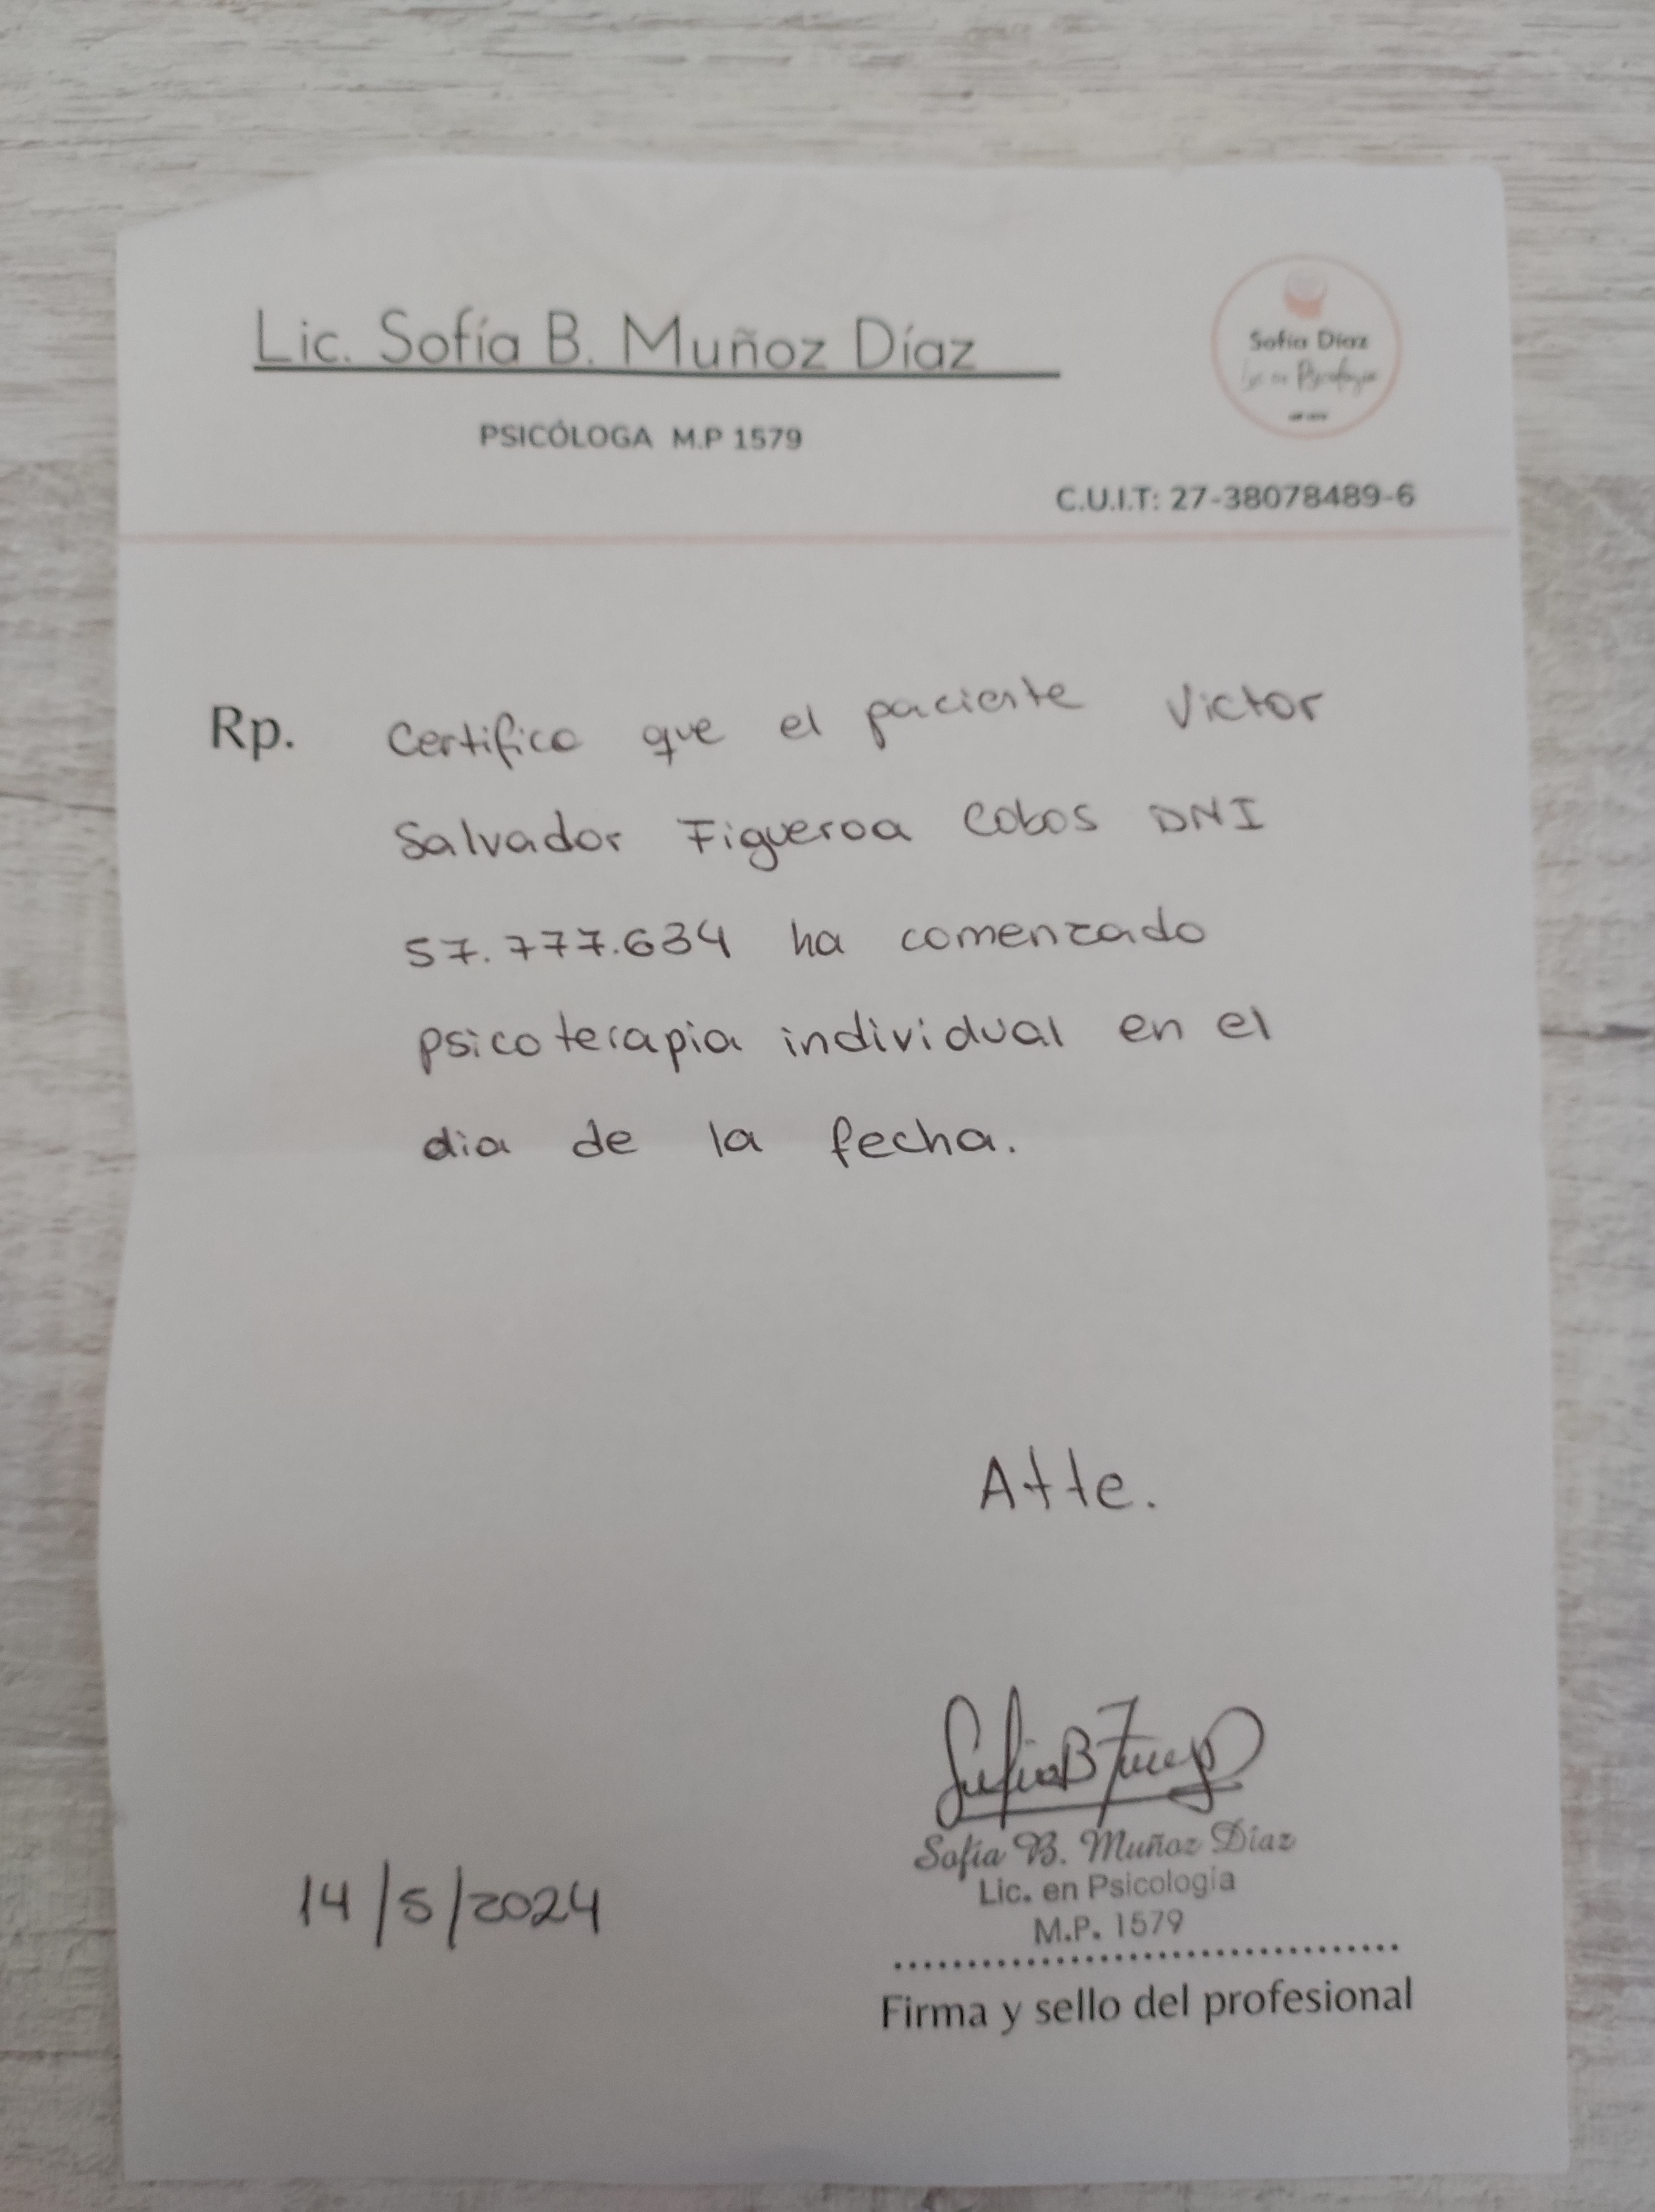 Lic. Sofía B. Muñoz Díaz
Sofía Díaz
Lic en Psicología
PSICÓLOGA M.P 1579
C.U.I.T: 27-38078489-6
Rp. Certifico que el paciente Victor
Salvador Figueroa Cobos DNI
57.777.634 ha comenzado
psicoterapia individual en el
dia de la fecha.
Atte.
14/5/2024
Sofía B. Muñoz Díaz
Lic. en Psicología
M.P. 1579
Firma y sello del profesional